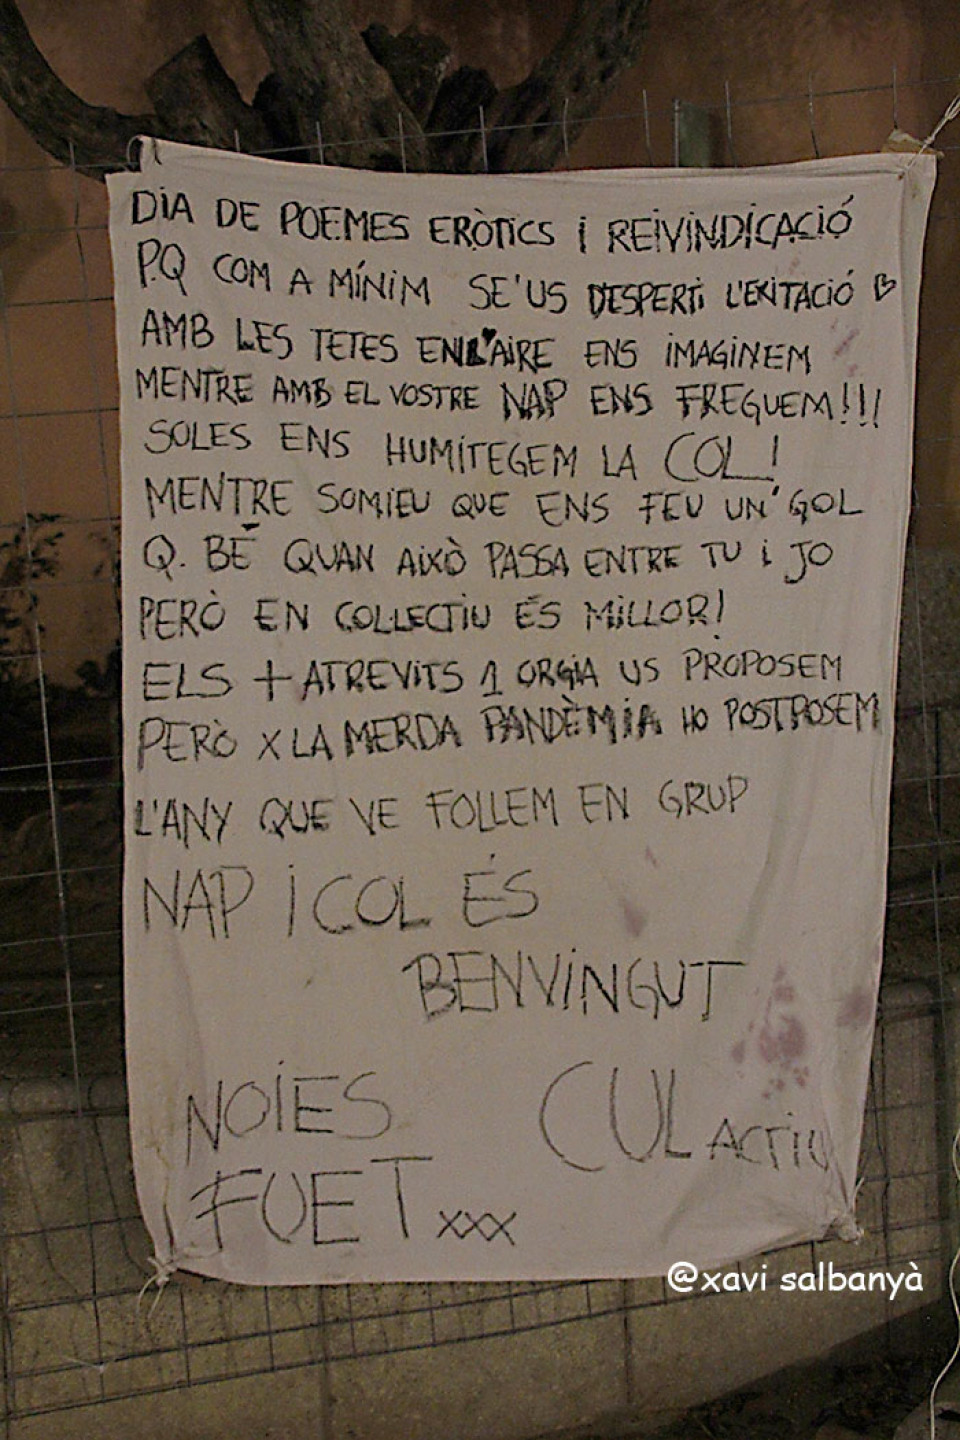 DIA DE POEMES ERÒTICS I REIVINDICACIÓ
P.Q COM A MÍNIM SE'US DESPERTI L'EXITACIÓ
AMB LES TETES ENL'AIRE ENS IMAGINEM
MENTRE AMB EL VOSTRE NAP ENS FREGUEM!!!
SOLES ENS HUMITEGEM LA COL!
MENTRE SOMIEU QUE ENS FEU UN GOL
Q. BÉ QUAN AIXÒ PASSA ENTRE TU I JO
PERÒ EN COL·LECTIU ÉS MILLOR!
ELS + ATREVITS 1 ORGIA US PROPOSEM
PERÒ X LA MERDA PANDÈMIA HO POSTPOSEM
L'ANY QUE VE FOLLEM EN GRUP
NAP I COL ÉS
BENVINGUT
NOIES CUL ACTIU
FUET XXX
@xavi salbanyà